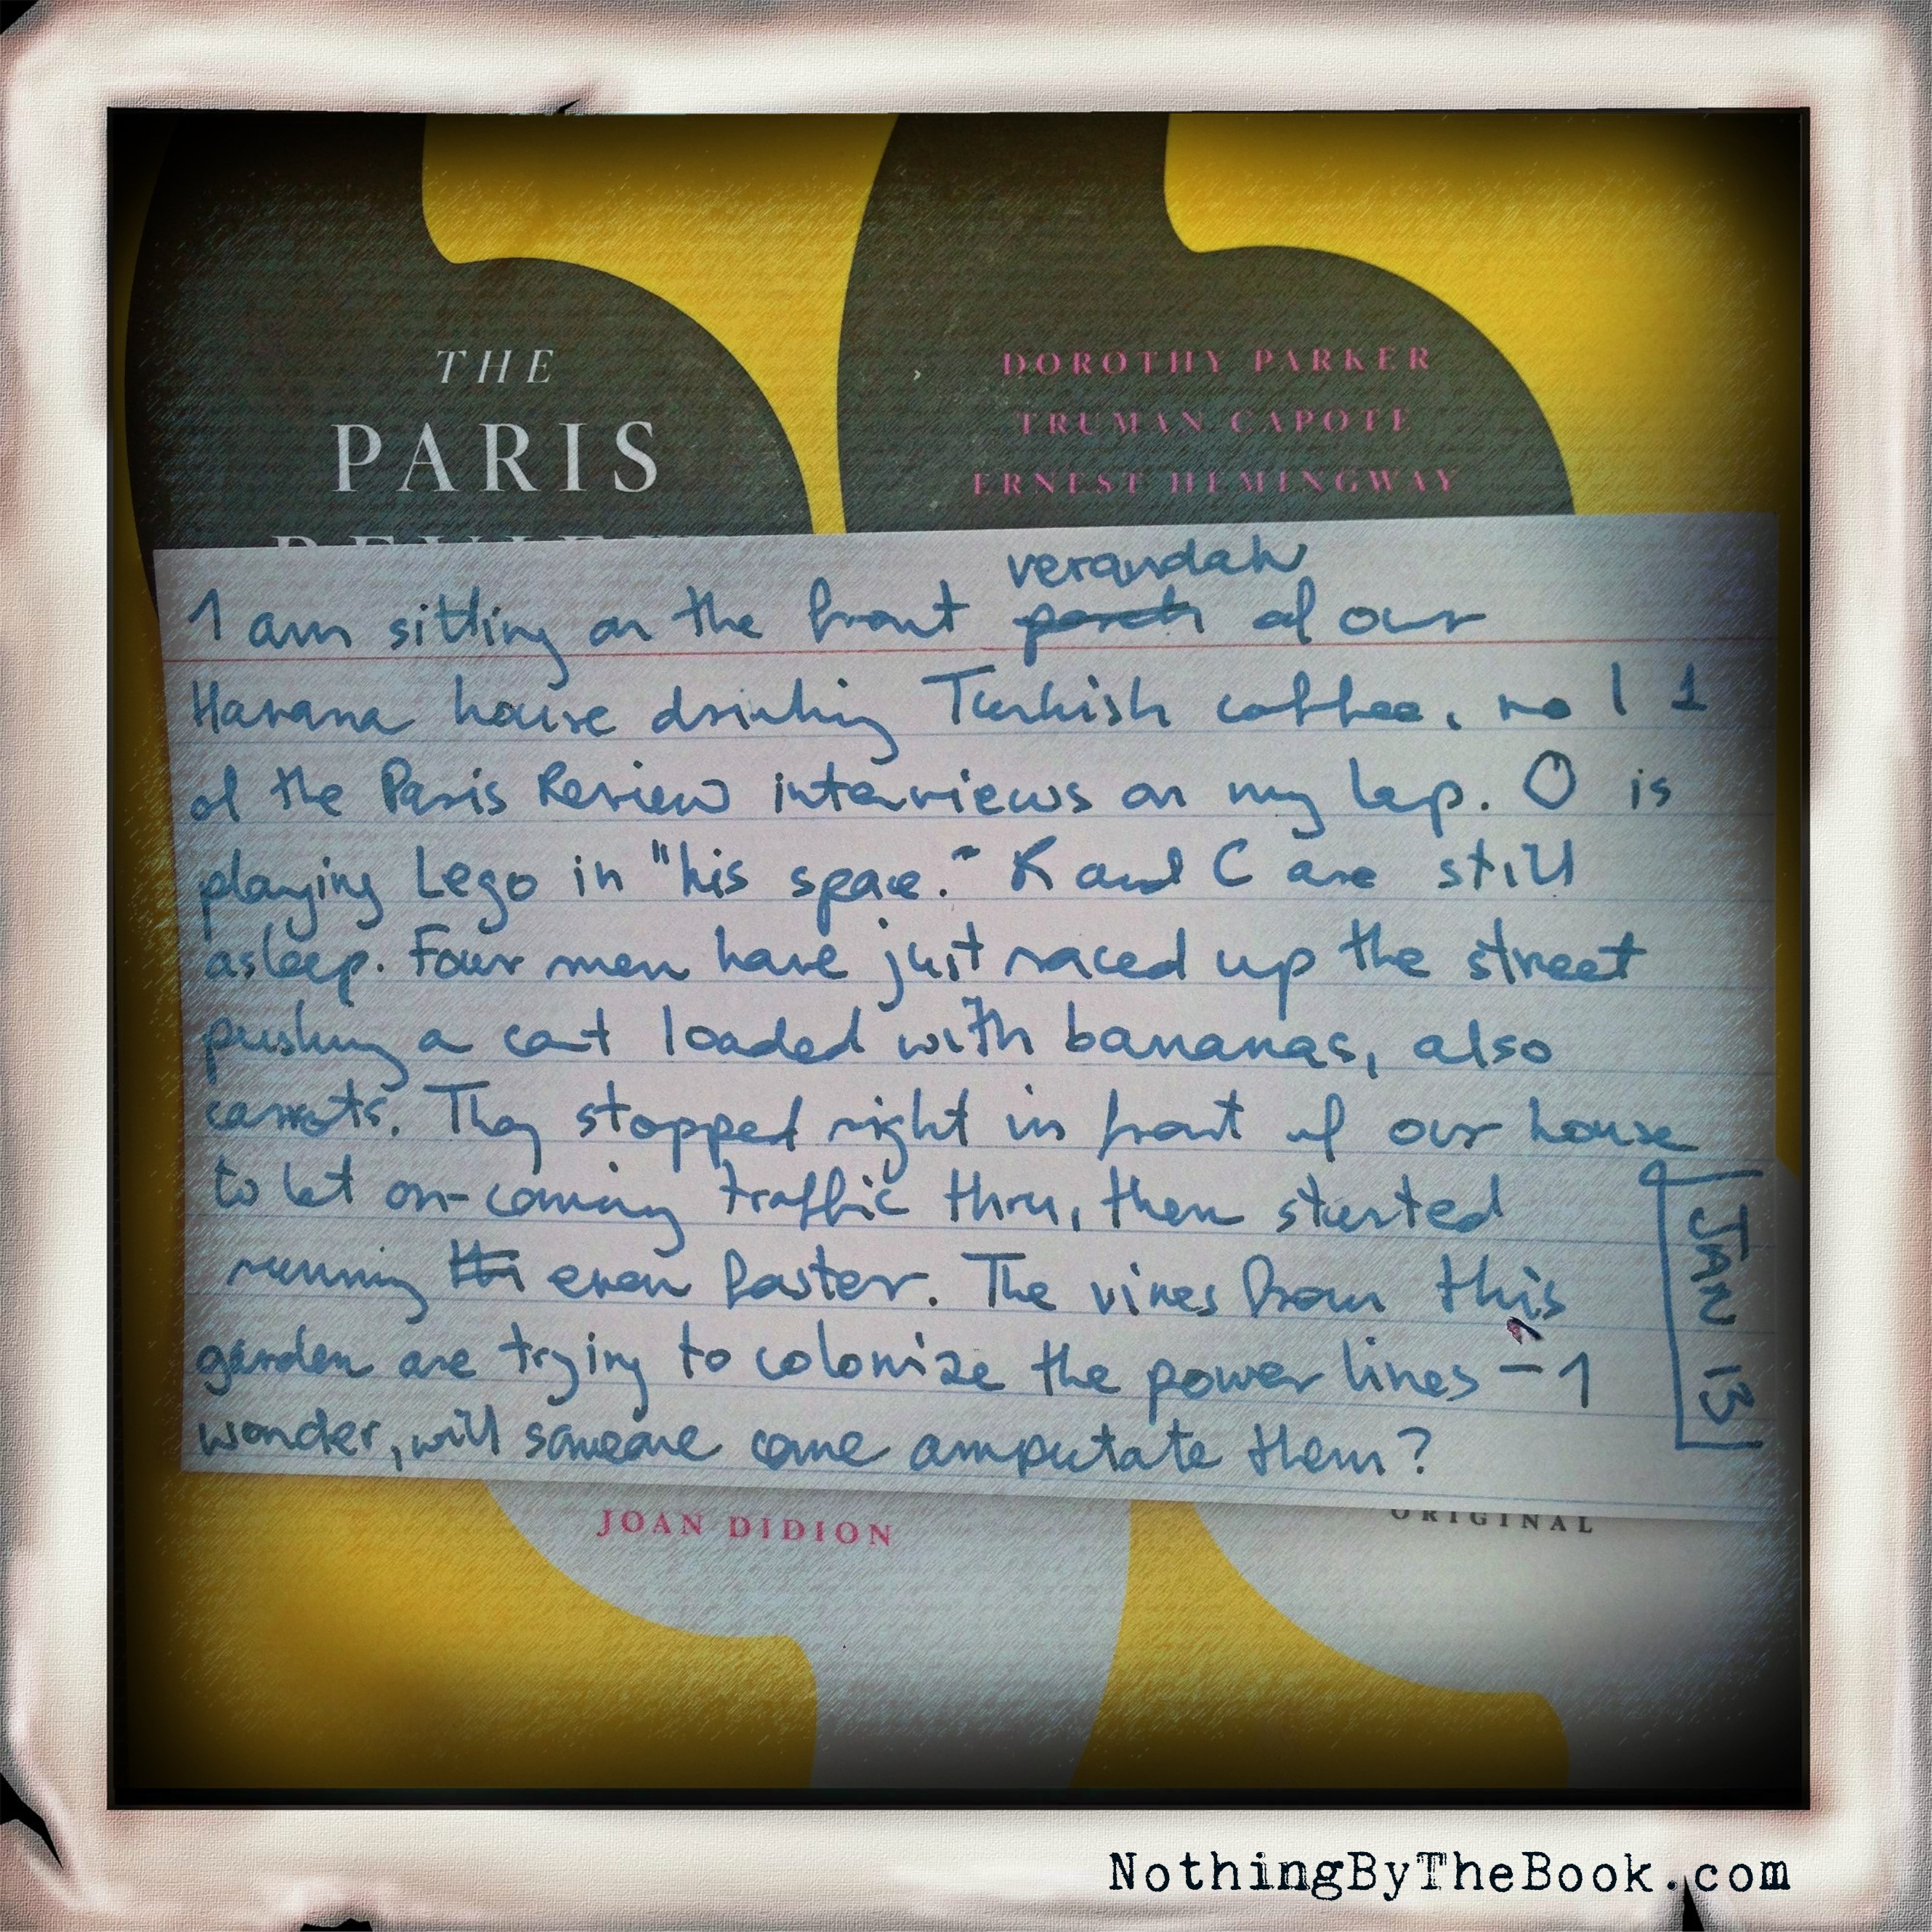 THE
PARIS
DOROTHY PARKER
TRUMAN CAPOTE
ERNEST HEMINGWAY
verandah
I am sitting on the front porch of our
Havana house drinking Turkish coffee, no 1 1
of the Paris Review interviews on my lap. O is
playing Lego in "his space." K and C are still
asleep. Four men have just raced up the street
pushing a cart loaded with bananas, also
carrots. They stopped right in front of our house
to let on-coming traffic thru, then started
running even faster. The vines from this
garden are trying to colonize the power lines – I
wonder, will someone come amputate them?
JAN 13
JOAN DIDION
ORIGINAL
NothingByTheBook.com